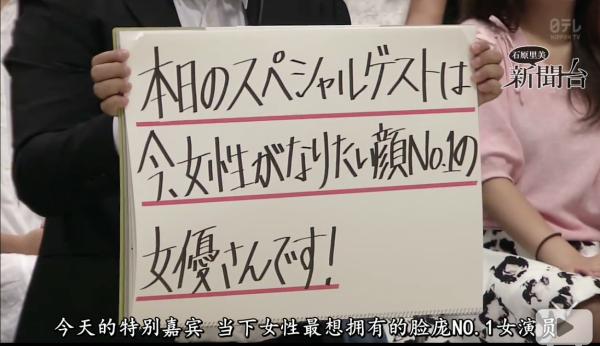 日テレ
NIPPON TV
石原里美
新聞台
本日のスペシャルゲストは
今、女性がなりたい顔No.1の
女優さんです!
今天的特别嘉宾 当下女性最想拥有的脸庞NO.1女演员